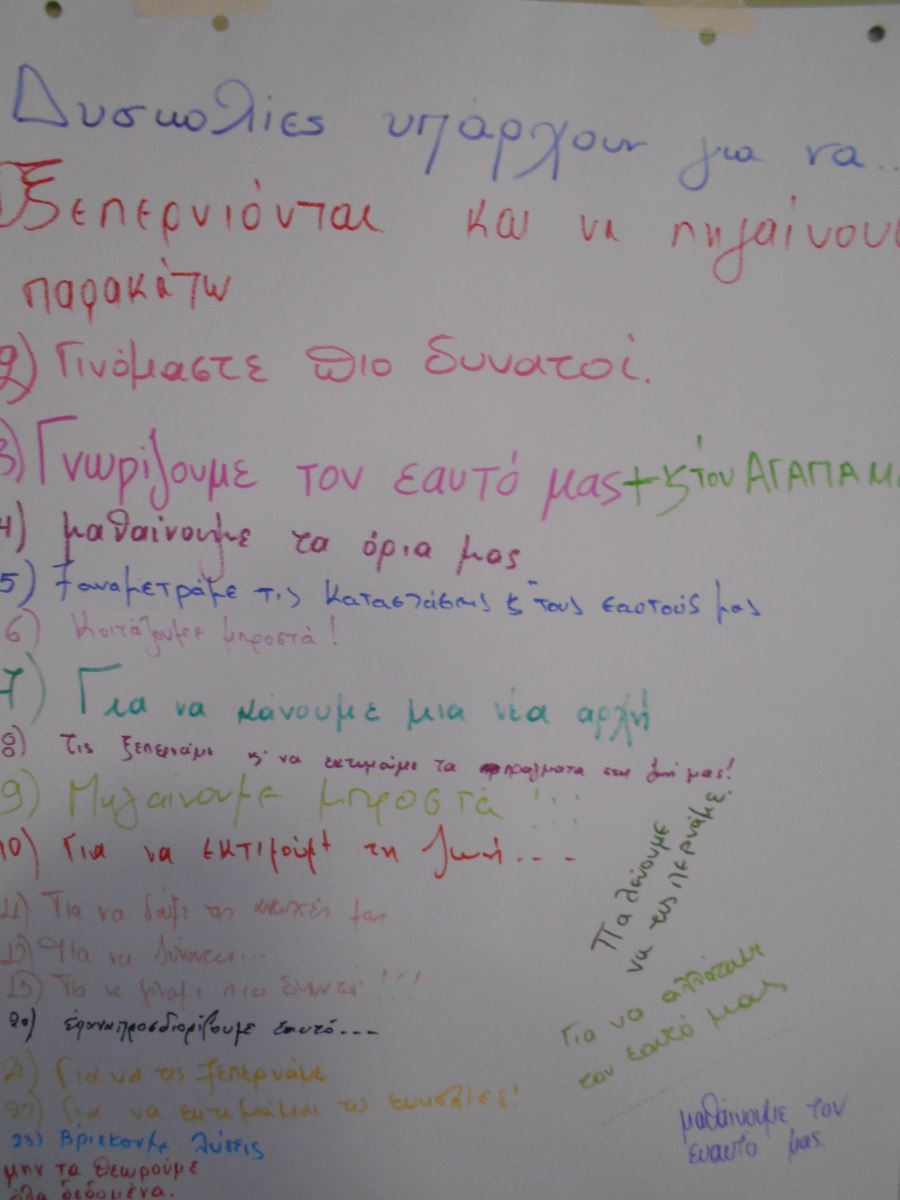 Δυσκολίες υπάρχουν για να...
1) Ξεπερνιόνται και να πηγαίνουμε
παρακάτω
2) Γινόμαστε πιο δυνατοί.
3) Γνωρίζουμε τον εαυτό μας + ξ τον ΑΓΑΠΑΜΕ
4) μαθαίνουμε τα όρια μας
5) Ξαναμετράμε τις καταστάσεις ξ τους εαυτούς μας
6) Κοιτάζουμε μπροστά!
7) Για να κάνουμε μια νέα αρχή
8) Τις ξεπερνάμε κ' να εκτιμάμε τα πράγματα στη ζωή μας!
9) Πηγαίνουμε μπροστά!!!
10) Για να εκτιμούμε τη ζωή....
11) Για να δούμε τις μας
12) Για να λύνονται...
13) Για να γίνουμε πιο δυνατοί!!!
20) επαναπροσδιορίζουμε εαυτό...
21) Για να τις ξεπερνάμε
22) Για να εκτιμάμε τις ευκολίες!
23) Βρίσκουμε λύσεις
μην τα θεωρούμε
όλα δεδομένα.
Παλεύουμε
να τις περνάμε.
Για να αλλάζουμε
τον εαυτό μας
μαθαίνουμε τον
εαυτό μας.